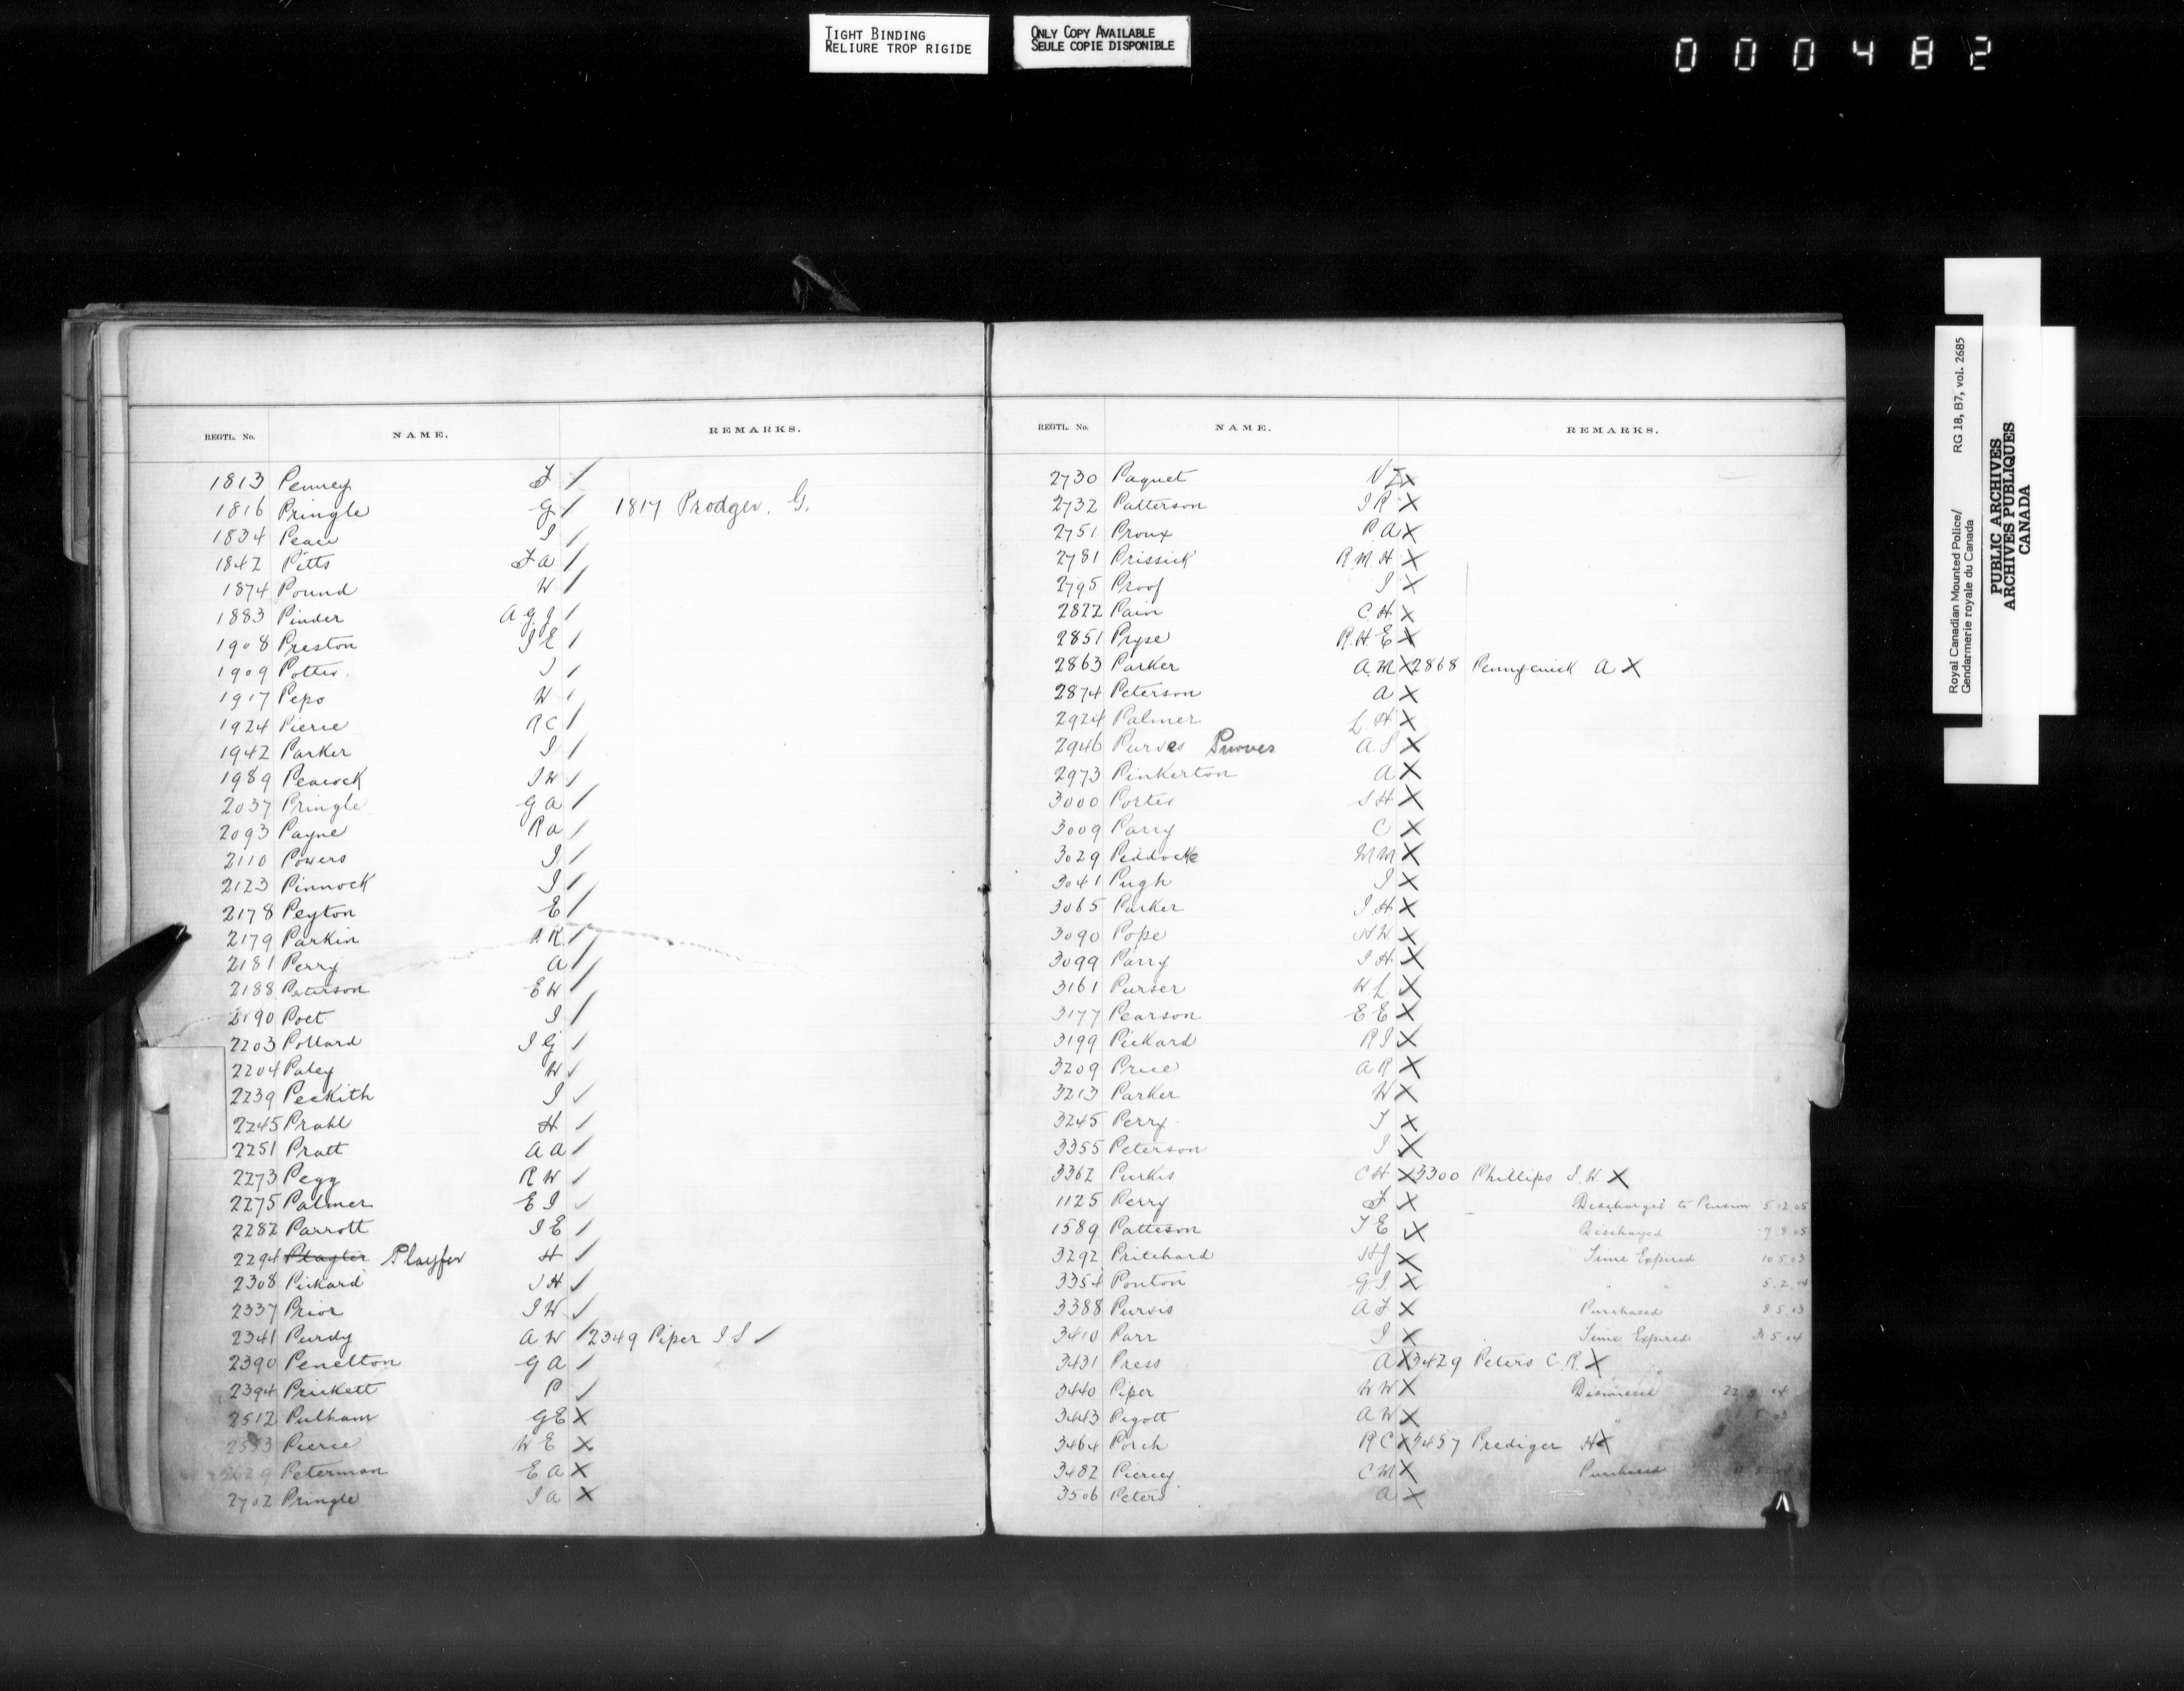 TIGHT BINDING
RELIURE TROP RIGIDE
ONLY COPY AVAILABLE
SEULE COPIE DISPONIBLE
000482
REGTL. No. NAME. REMARKS.
1813 Penney F /
1816 Pringle G / 1817 Prodger. G.
1834 Peace J /
1842 Pitts F A /
1874 Pound W /
1883 Pinder A G J /
1908 Preston J E /
1909 Potter J /
1917 Pepo W /
1924 Pierie R C /
1942 Parker J /
1989 Peacock J W /
2037 Pringle G A /
2093 Payne R A /
2110 Powers J /
2123 Pinnock J /
2178 Peyton E /
2179 Parkin R /
2181 Perry A /
2188 Paterson E W /
2190 Poet J /
2203 Pollard J G /
2204 Paley W /
2239 Peckith J /
2245 Prahl H /
2251 Pratt A A /
2273 Pegg R W /
2275 Palmer E J /
2282 Parrott J E /
2294 Playter Playfer H /
2308 Pickard J H /
2337 Prior J W /
2341 Purdy A W / 2349 Piper J S /
2390 Penelton G A /
2394 Prickett P /
2512 Pulham G E X
Pierce W E X
Peterman E A X
2702 Pringle J A X
REGTL. No. NAME. REMARKS.
2730 Paquet N Z X
2732 Patterson J R X
2751 Proux P A X
2781 Prissick R M H X
2795 Proof J X
2822 Pain C H X
2851 Pryse R H E X
2863 Parker A M X 2868 Pennycuick A X
2874 Peterson A X
2924 Palmer L H X
2946 Purves Purves A S X
2973 Pinkerton A X
3000 Porter S H X
3009 Parry C X
3029 Piddocke M M X
3041 Pugh J X
3065 Parker J H X
3090 Pope H W X
3099 Parry J H X
3161 Purser W L X
3177 Pearson E E X
3199 Pickard R J X
3209 Price A R X
3213 Parker W X
3245 Perry T X
3355 Peterson J X
3362 Purkis C H X 3300 Phillips J. W. X
1125 Perry F X Discharged to Pension 5 12 05
1589 Patteson T E X Discharged 7 8 05
3292 Pritchard H J X Time Expired 10 5 03
3354 Ponton G J X " " 5. 2. 04
3388 Purvis A F X Purchased 8 5. 03
3410 Parr J X Time Expired 31 5. 04
3431 Press A X 3429 Peters C. R. X
3440 Piper W W X Dismissed 04
3443 Pigott A W X
3464 Porch R C X 3457 Prediger H X
3482 Piercy C M X Purchased
3506 Peters A X
Royal Canadian Mounted Police/
Gendarmerie royale du Canada
RG 18, B7, vol. 2685
PUBLIC ARCHIVES
ARCHIVES PUBLIQUES
CANADA